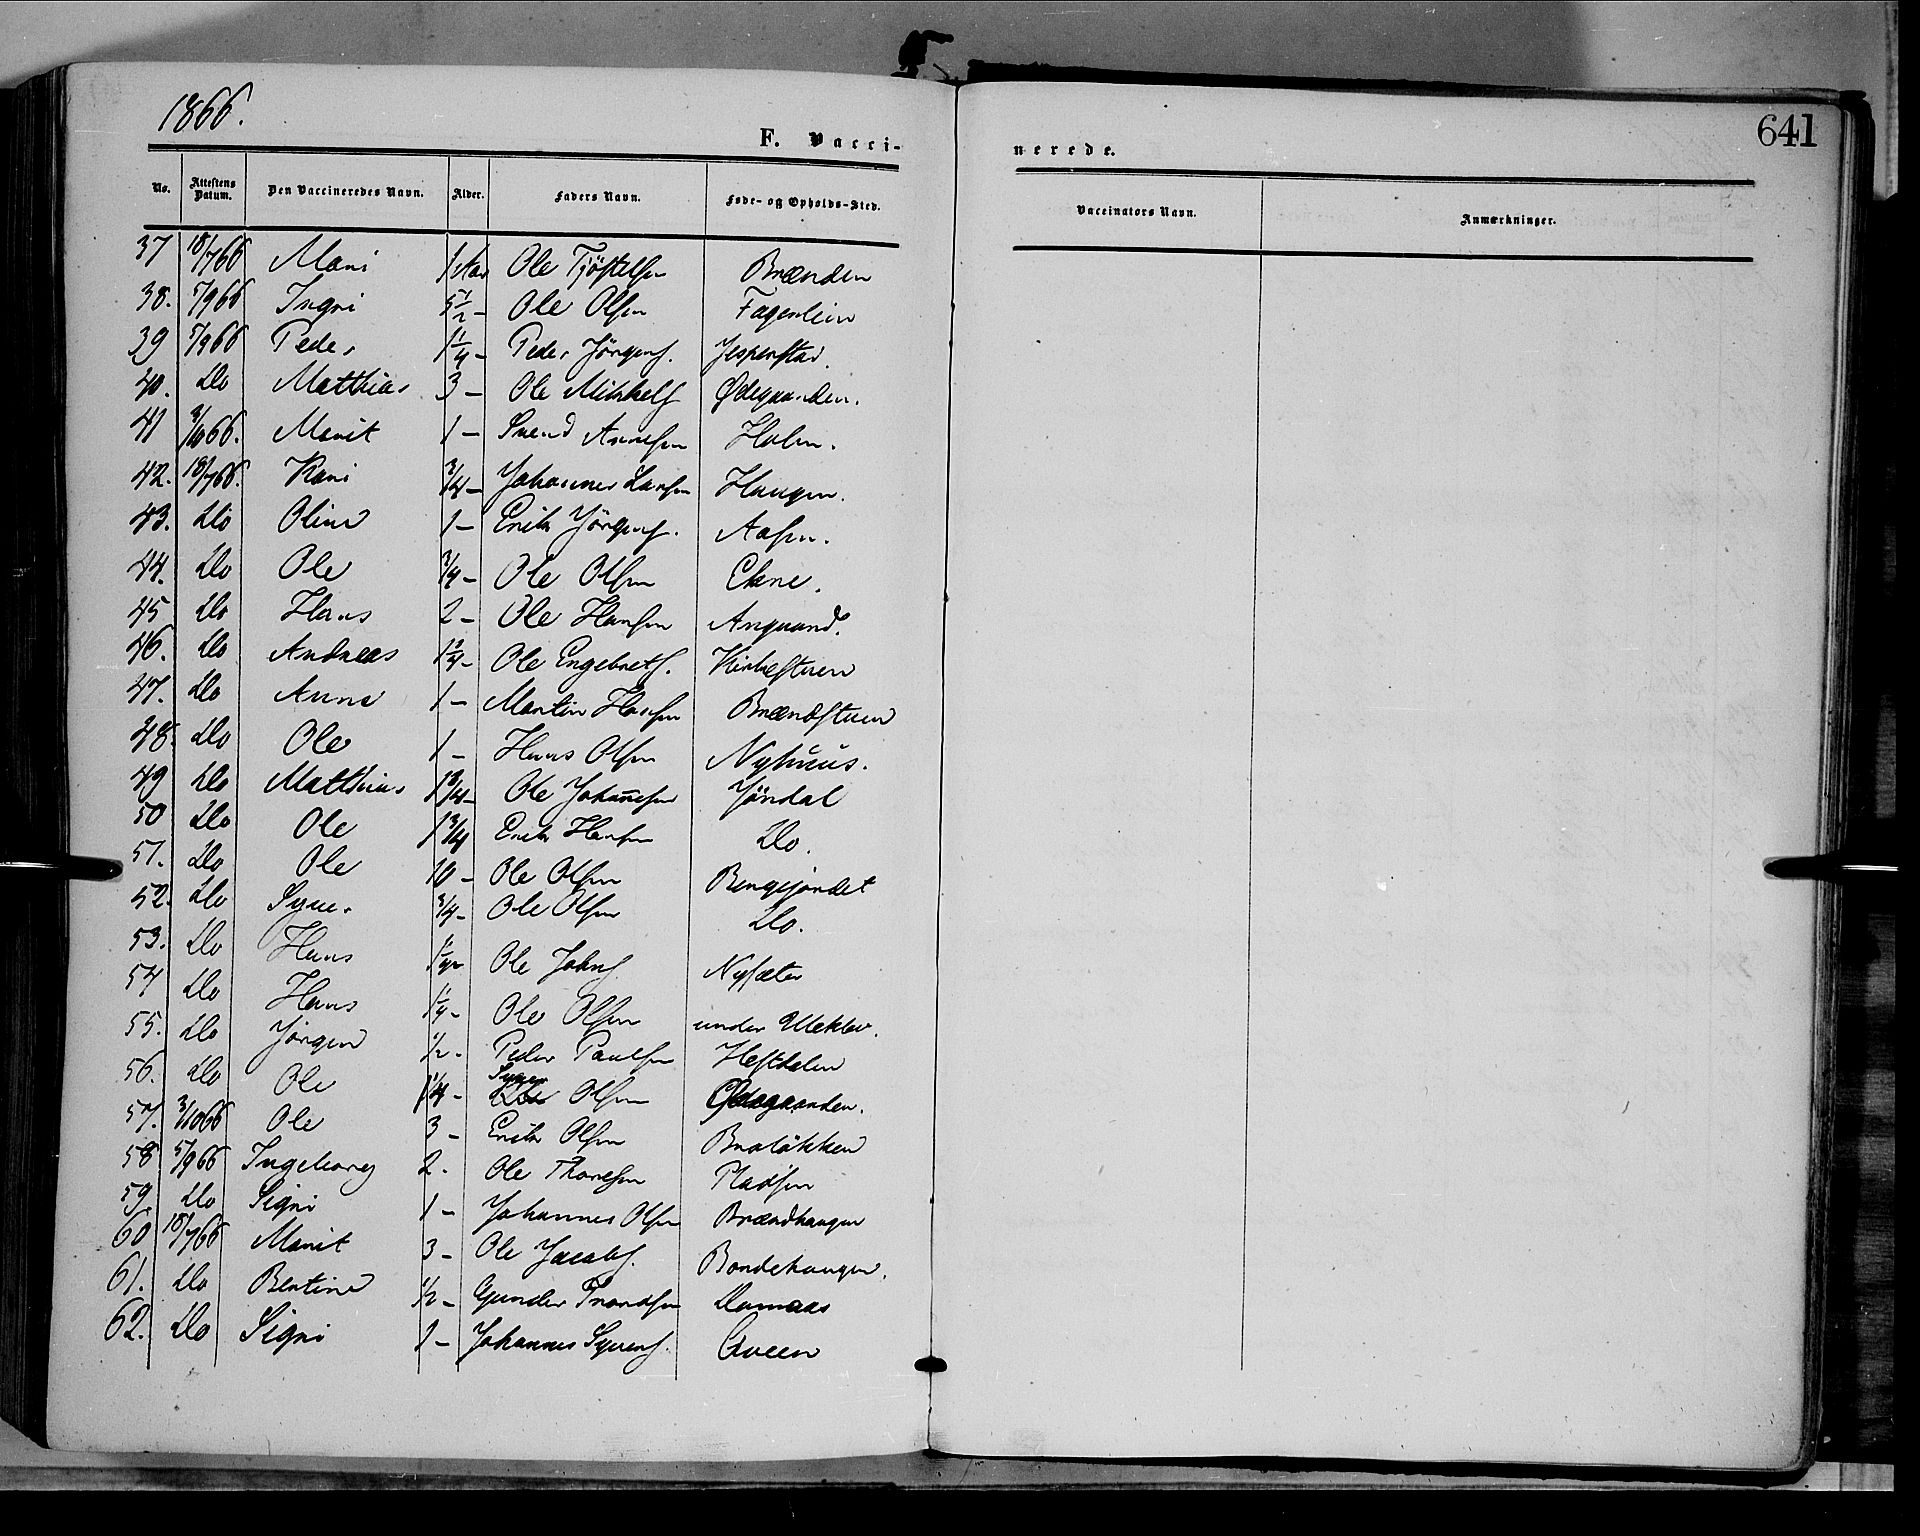 1866.
641
F. Vacci-
nerede.
No. Attestens Datum. Den Vaccineredes Navn. Alder. Faders Navn. Føde- og Opholds-Sted. Vaccinators Navn. Anmærkninger.
37 18/7 66 Mari 1 Aar Ole Tjöstelsen Brænden
38. 5/9 66 Ingri 5 1/2 - Ole Olsen Fagerlien
39 5/9 66 Peder 1 1/4 - Peder Jörgens. Jesperstad.
40. Do Matthias 3 - Ole Mikkels Ødegaarden.
41 3/10 66. Marit 1 - Svend Arnesen Holen.
42. 18/7 66. Rani 3/4 - Johannes Larsen Haugen.
43. Do Oline 1 - Erik Jörgens. Aasen.
44. Do Ole 3/4 - Ole Olsen Ekne.
45 Do Hans 2 - Ole Hansen Angaard.
46. Do Andreas 1 3/4 - Ole Engebrets. Kirkestuen
47. Do Anne 1 - Martin Hansen Brændstuen
48. Do Ole 1 - Hans Olsen Nyhuus.
49 Do Matthias 1 3/4 - Ole Johannesen Jöndal
50 Do Ole 1 3/4 Erik Hansen Do.
51. Do Ole 10 - Ole Olsen Bergejordet
52. Do Syver 3/4 - Ole Olsen Do.
53. Do Hans Ole Johns Nysæter
54 Do Hans 1 1/4 - Ole Olsen under Uleklev.
55. Do Jörgen 1/2 - Peder Paulsen Heftdalen
56. Do Ole 1 1/4 - Syver Olsen Ødegaarden.
57. 3/10 66 Ole 3 - Erik Olsen Bratökken
58 5/9 66 Ingeborg 2 - Ole Thoresen Pladsen
59. Do Signi 1 - Johannes Olsen Brændhaugen
60 18/7 66 Marit 3 - Ole Jacobs. Bondehaugen.
61. Do Bertine 1/2 - Gunder Trondsen Domaas
62. Do Signi 1 - Johannes Syvers. Qveen